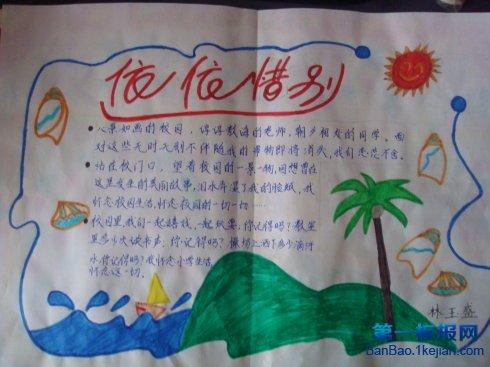 依依惜别
• 风景如画的校园，谆谆教诲的老师，朝夕相处的同学。面
对这些无时无刻不伴随我的事物即将消失，我们恋恋不舍。
• 站在校门口，望着校园的一景一物，回想曾在
这里发生的美丽故事，泪水弄湿了我的脸颊，我
怀恋校园生活，怀恋校园的一切一切……
• 校园里，我们一起嬉戏，一起玩耍，你记得吗？教室
里多少次读书声，你记得吗？操场上洒下多少滴汗
水，你记得吗？我怀恋小学生活，
怀恋这一切。
林玉盛
第一板报网
BanBao.1kejian.com